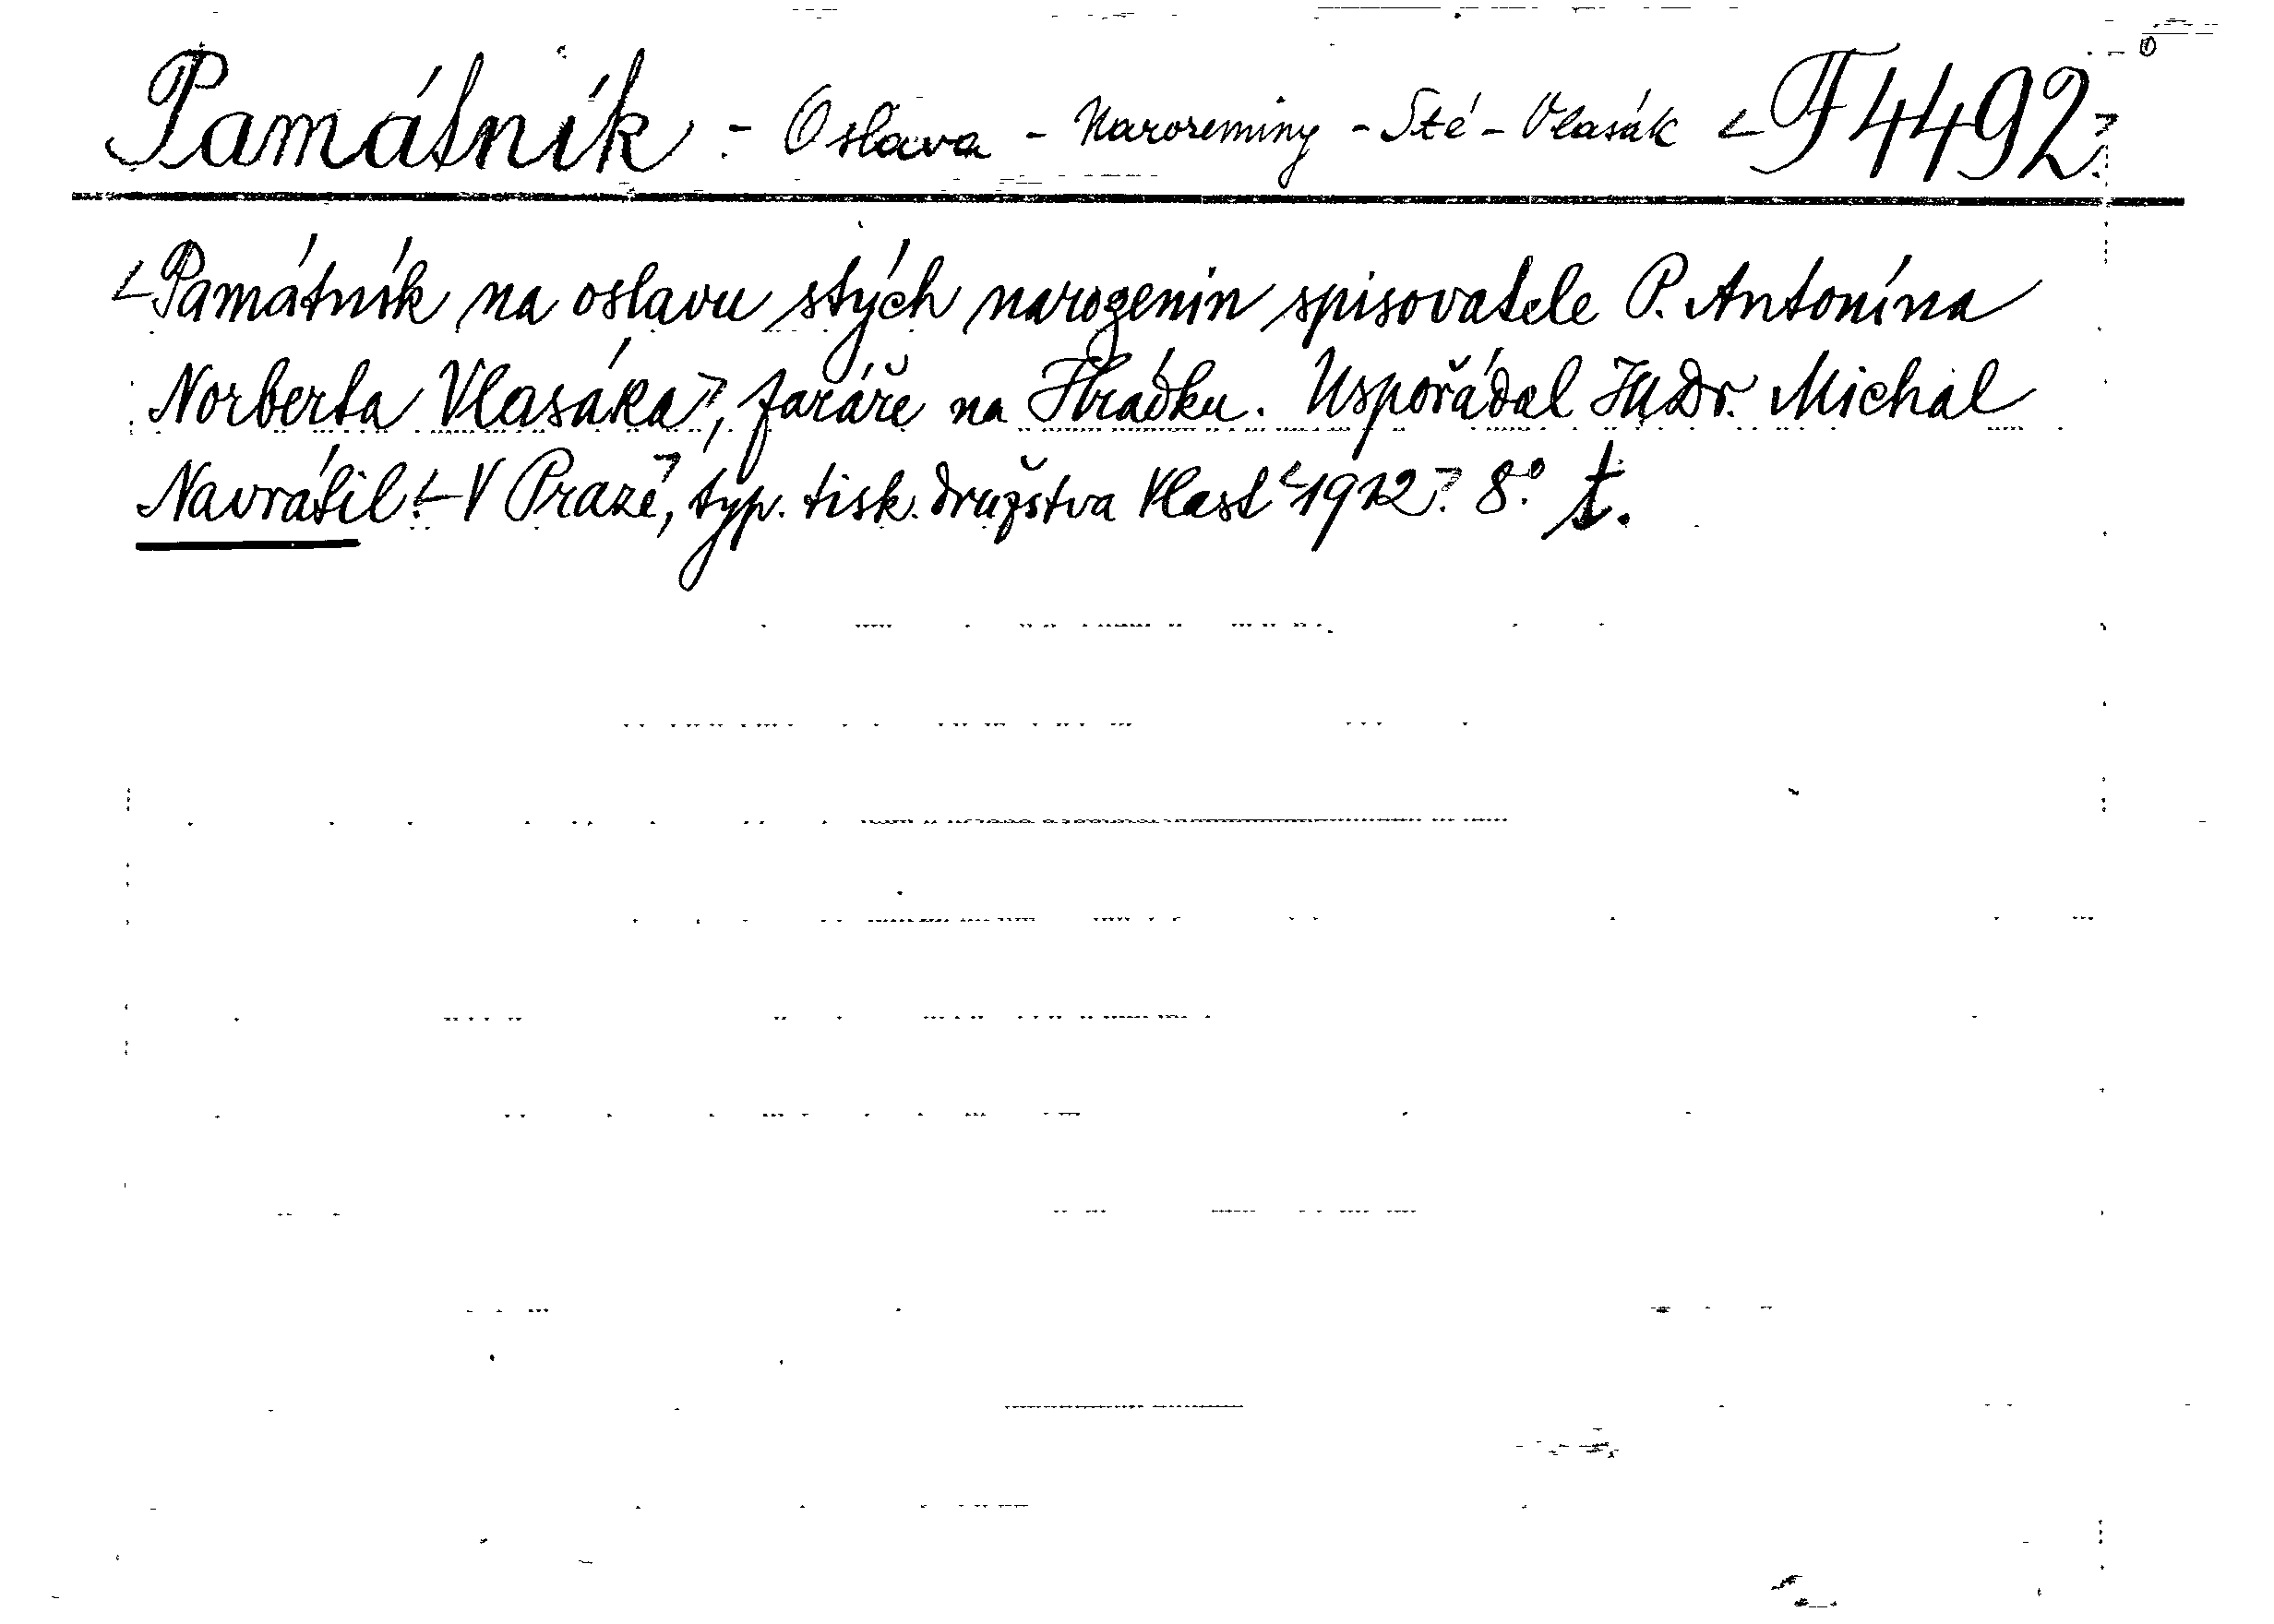 Památník - Oslava - Narozeniny - Sté - Vlasák F 4492.
Památník na oslavu stých narozenin spisovatele P. Antonína
Norberta Vlasáka, faráře na Hrádku. Uspořádal JUDr. Michal
Navrátil. - V Praze, typ. tisk. družstva Vlast 1912. 8° t.